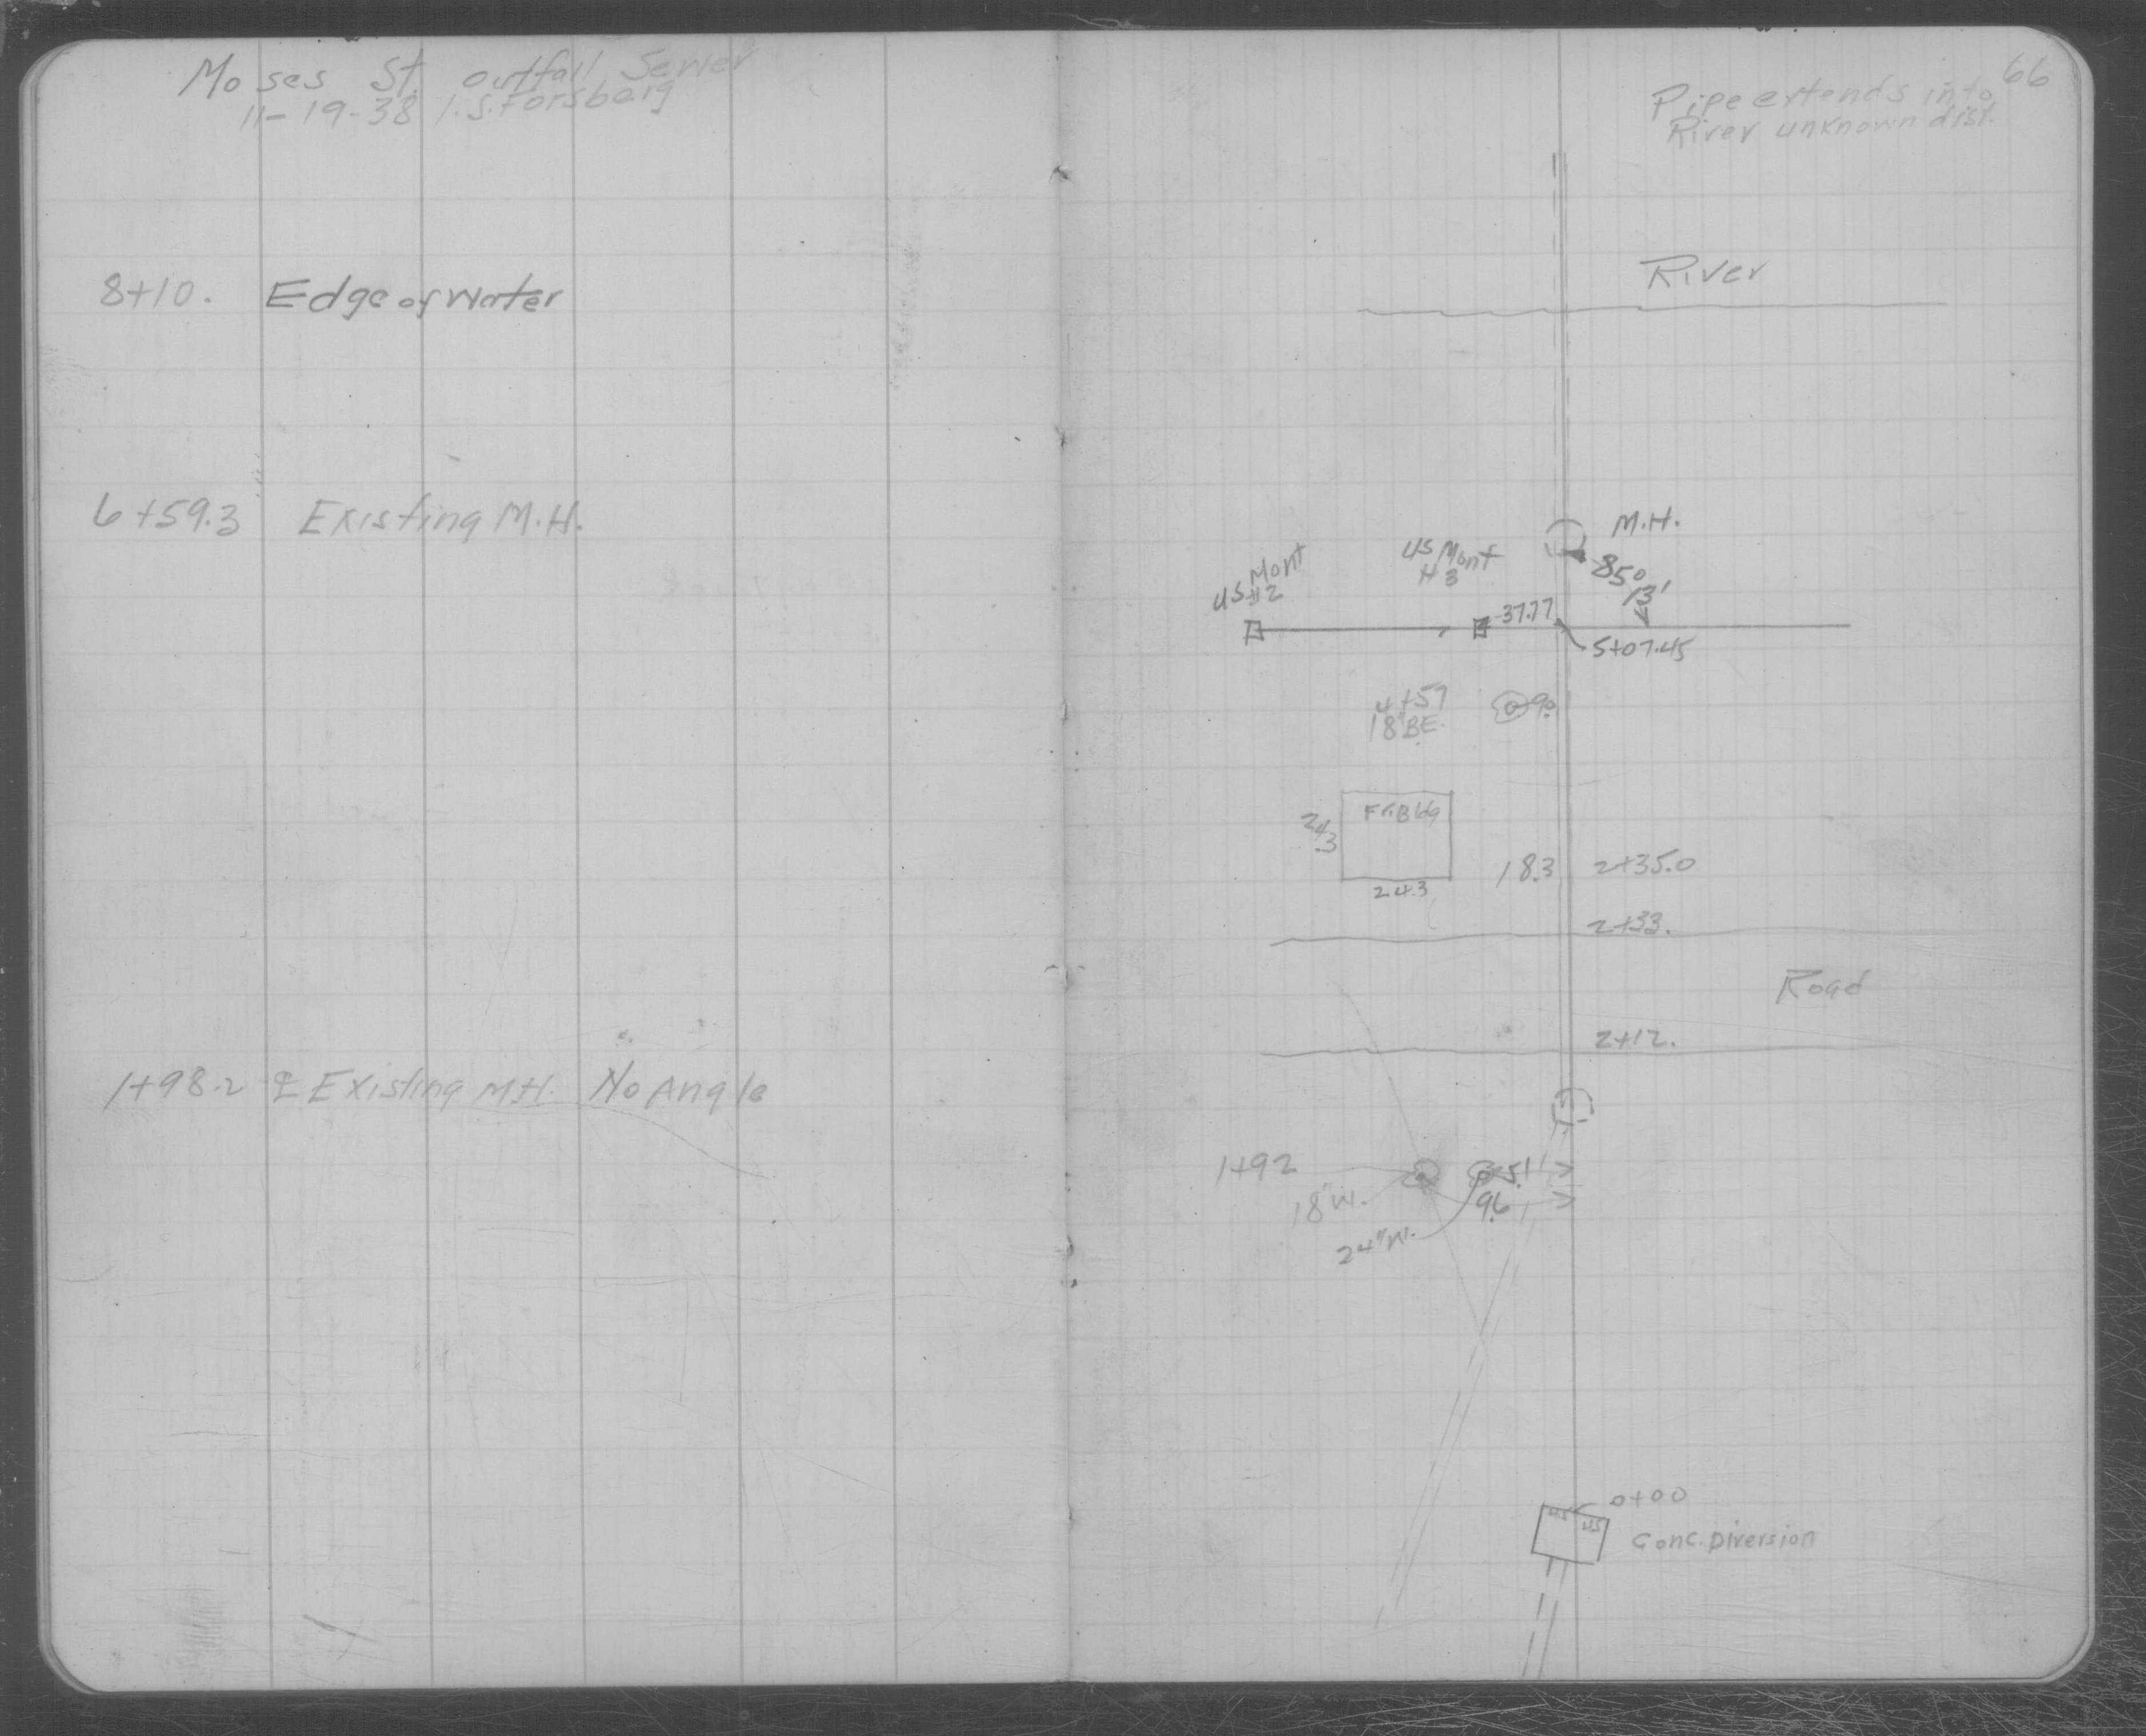 Moses St. outfall Sewer
11-19-38 I.S. Forsberg
8+10. Edge of Water
6+59.3 Existing M.H.
1+98.2 ℄ Existing M.H. No Angle
66
Pipe extends into
River unknown dist.
River
M.H.
85°
13'
US Mont
#2
US Mont
#3
37.77
5+07.45
4+57
18"BE.
9.0
Fr. Bldg
24.3
24.3
18.3
2+35.0
2+33.
Road
2+12.
1+92
5.1
18"W.
9.6
24"W.
0+00
Conc. Diversion